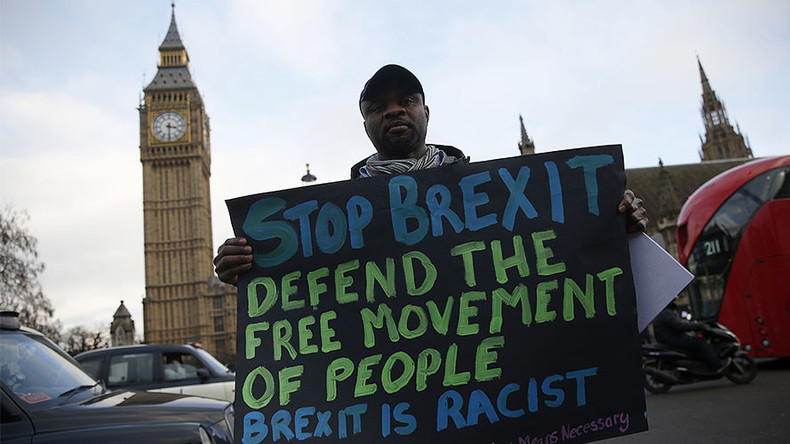 STOP BREXIT
DEFEND THE
FREE MOVEMENT
OF PEOPLE
BREXIT IS RACIST
Means Necessary
211